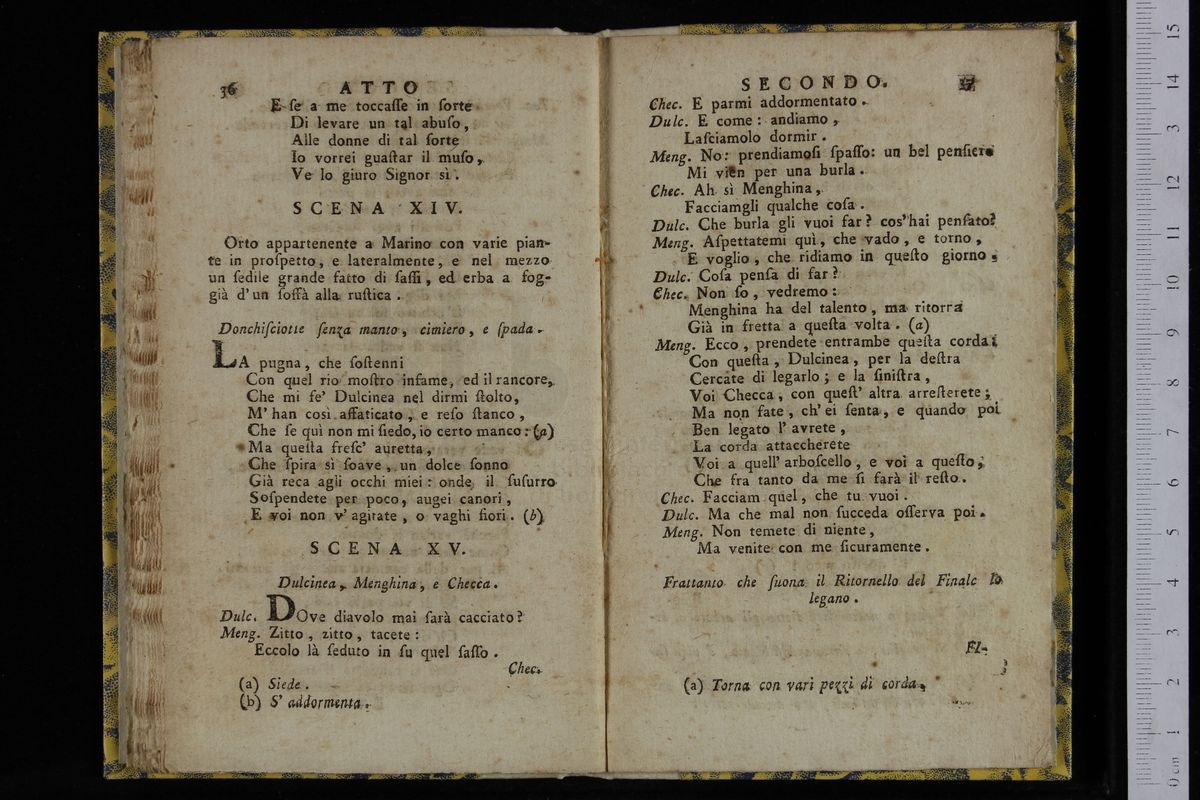 36 ATTO
E ſe a me toccaſſe in ſorte
Di levare un tal abuſo,
Alle donne di tal ſorte
Io vorrei guaſtar il muſo,
Ve lo giuro Signor sì.
SCENA XIV.
Orto appartenente a Marino con varie pian-
te in proſpetto, e lateralmente, e nel mezzo
un ſedile grande fatto di ſaſſi, ed erba a fog-
già d'un ſoffà alla ruſtica.
Donchiſciotte ſenza manto, cimiero, e ſpada.
LA pugna, che ſoſtenni
Con quel rio moſtro infame, ed il rancore,
Che mi fe' Dulcinea nel dirmi ſtolto,
M' han così affaticato, e reſo ſtanco,
Che ſe quì non mi ſiedo, io certo manco: (a)
Ma queſta freſc' auretta,
Che ſpira sì ſoave, un dolce ſonno
Già reca agli occhi miei: onde il ſuſurro
Soſpendete per poco, augei canori,
E voi non v' agitate, o vaghi fiori. (b)
SCENA XV.
Dulcinea, Menghina, e Checca.
Dulc. DOve diavolo mai ſarà cacciato?
Meng. Zitto, zitto, tacete:
Eccolo là ſeduto in ſu quel ſaſſo.
Chec.
(a) Siede.
(b) S' addormenta.
SECONDO.
Chec. E parmi addormentato.
Dulc. E come: andiamo,
Laſciamolo dormir.
Meng. No: prendiamoſi ſpaſſo: un bel penſiere
Mi vien per una burla.
Chec. Ah sì Menghina,
Facciamgli qualche coſa.
Dulc. Che burla gli vuoi far? cos'hai penſato?
Meng. Aſpettatemi quì, che vado, e torno,
E voglio, che ridiamo in queſto giorno.
Dulc. Coſa penſa di far?
Chec. Non ſo, vedremo:
Menghina ha del talento, ma ritorra
Già in fretta a queſta volta. (a)
Meng. Ecco, prendete entrambe queſta corda:
Con queſta, Dulcinea, per la deſtra
Cercate di legarlo; e la ſiniſtra,
Voi Checca, con queſt' altra arreſterete;
Ma non fate, ch' ei ſenta, e quando poi
Ben legato l' avrete,
La corda attaccherete
Voi a quell' arboſcello, e voi a queſto,
Che fra tanto da me ſi farà il reſto.
Chec. Facciam quel, che tu vuoi.
Dulc. Ma che mal non ſucceda oſſerva poi.
Meng. Non temete di niente,
Ma venite con me ſicuramente.
Frattanto che ſuona il Ritornello del Finale lo
legano.
FI-
(a) Torna con vari pezzi di corda.
0 cm 1 2 3 4 5 6 7 8 9 10 11 12 13 14 15